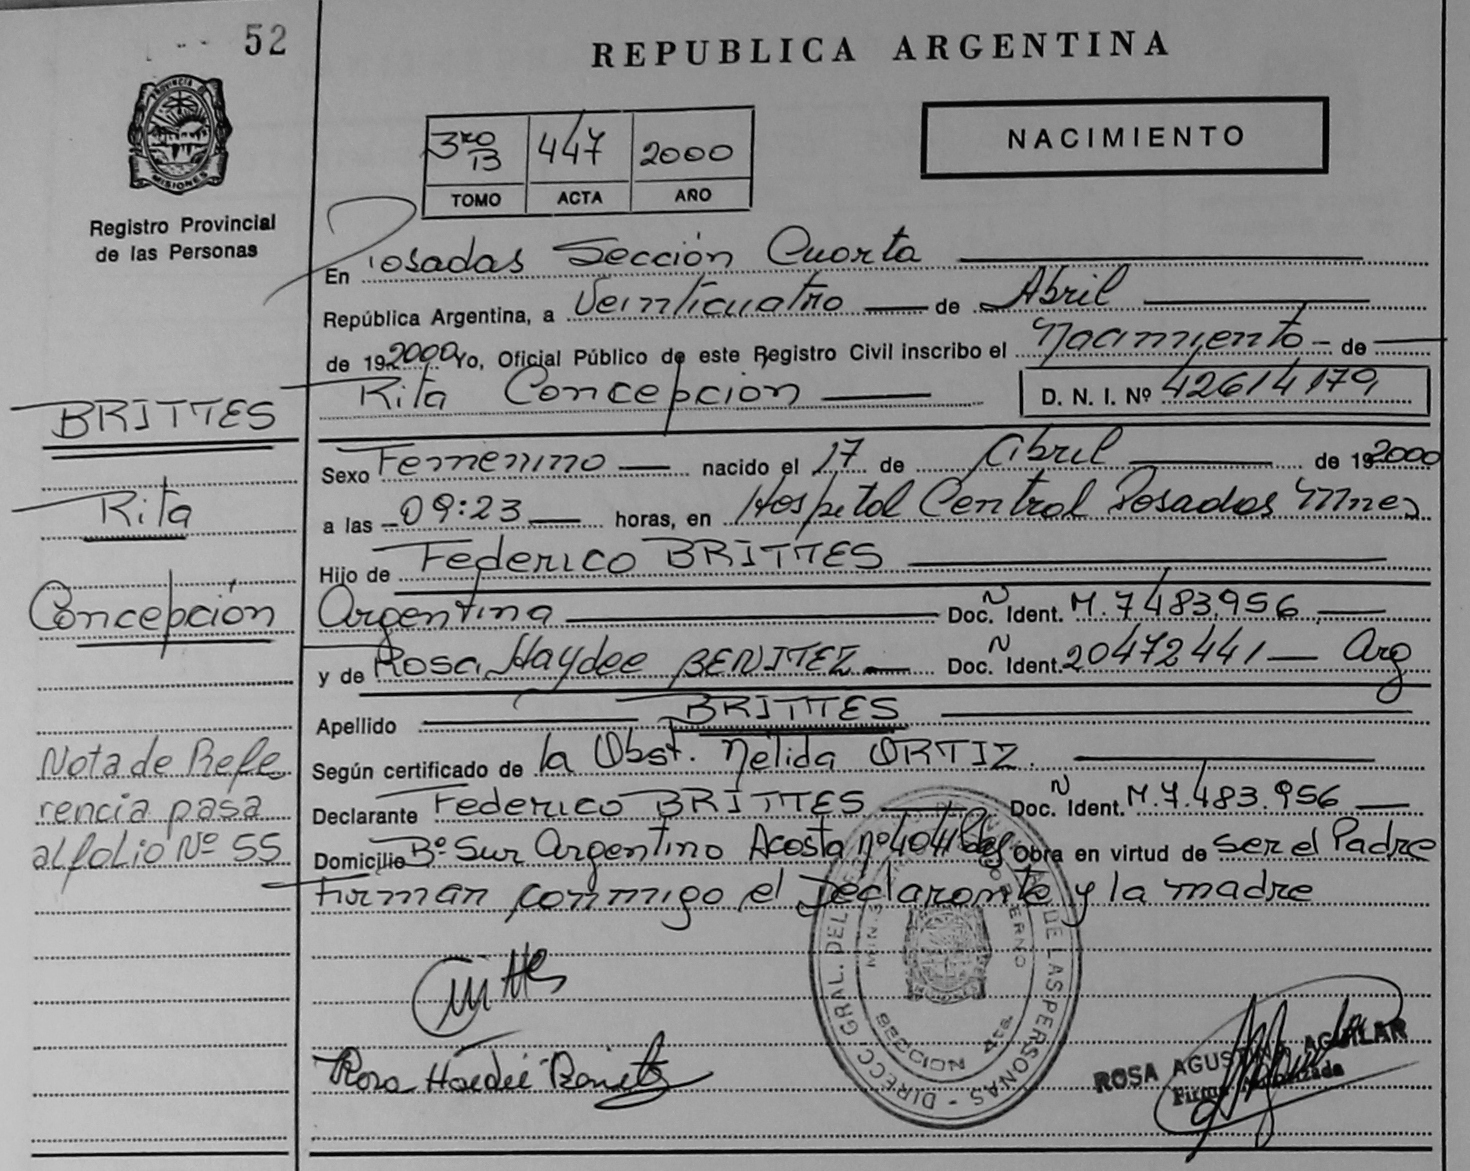 52
REPUBLICA ARGENTINA
PROVINCIA DE
MISIONES
Registro Provincial
de las Personas
3ro/13 447 2000
TOMO ACTA AÑO
NACIMIENTO
En Posadas Sección Cuarta
República Argentina, a Veinticuatro de Abril
de 192000 Yo, Oficial Público de este Registro Civil inscribo el Nacimiento de
Rita Concepción D. N. I. Nº 42614179
BRITTES
Sexo Femenino nacido el 17 de Abril de 192000
Rita
a las 09:23 horas, en Hospital Central Posadas Mnes
Hijo de Federico BRITTES
Concepción
Argentina Doc. Ident. M. 7483.956
y de Rosa Haydee BENITEZ Doc. Ident. 20472441 Arg
Apellido BRITTES
Nota de Refe
rencia pasa
al folio Nº 55
Según certificado de la Obst. Nélida ORTIZ.
Declarante Federico BRITTES Doc. Ident. M. 7.483.956
Domicilio Bº Sur Argentino Acosta nº4041 Obra en virtud de ser el Padre
Firman conmigo el Declarante y la madre
Rosa Haedeé Benitez
DIRECC. GRAL. DEL DE LAS PERSONAS
SECCION 4ta.
ROSA AGUSTINA AGUILAR
Firma Autorizada